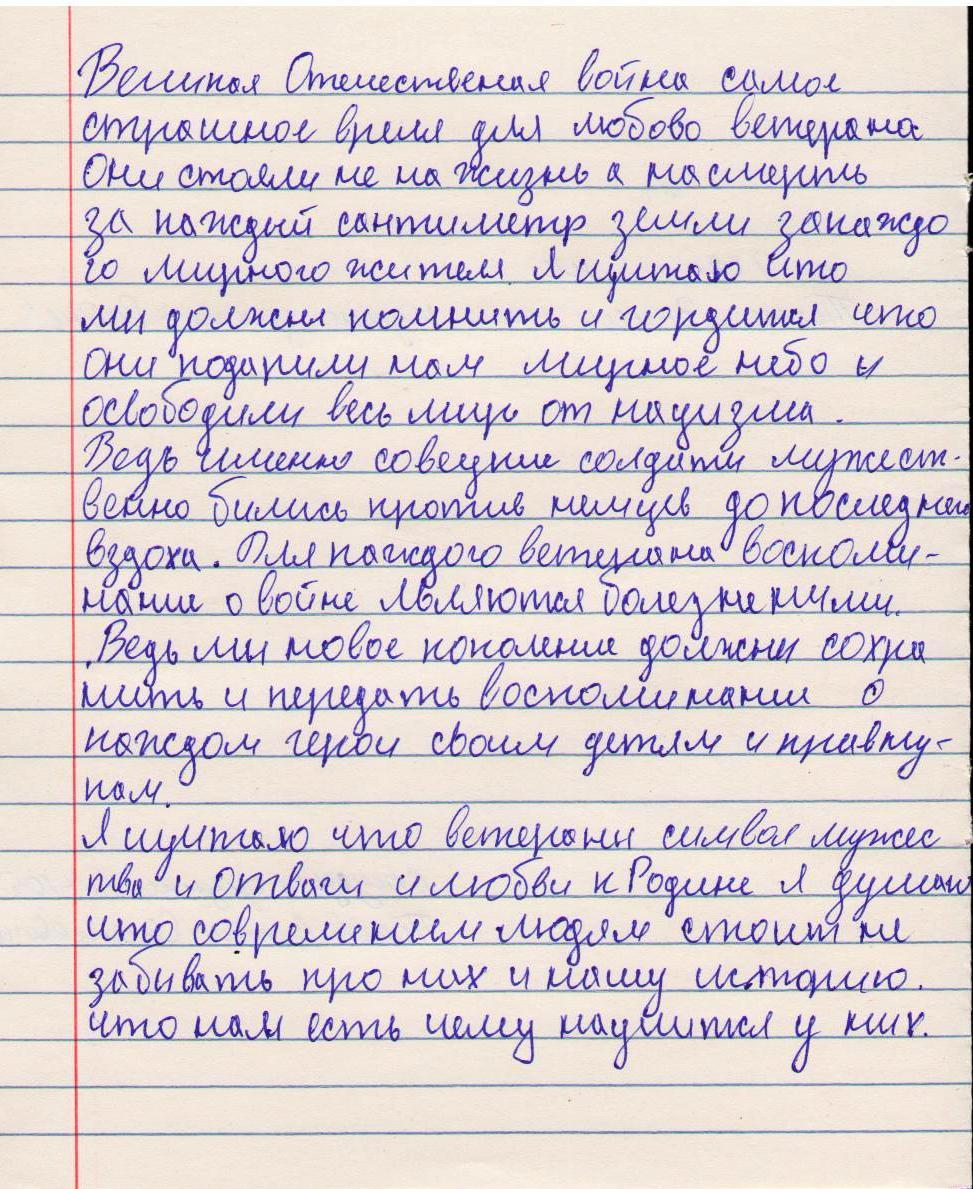 Великая Отечественая война самое
страшное время для любово ветерана
Они стояли не на жизнь а насмерть
за каждый сантиметр земли закаждо
го мирного жителя Я щитаю что
ми должны помнить и гордится что
они подарили нам мирное небо и
освободили весь мир от нацизма.
Ведь именно совецкие солдаты мужест-
венно бились против немцев до последнего
вздоха. Для каждого ветерана воспоми-
нание о войне являются болезнеными.
Ведь ми новое поколение должны сохра
нить и передать воспоминании о
каждом герои своим детям и правну-
кам.
Я щитаю что ветераны символ мужес
тва и отваги и любви к Родине я думаю
что современием людям стоит не
забивать про них и нашу историю.
что нам есть чему научится у них.